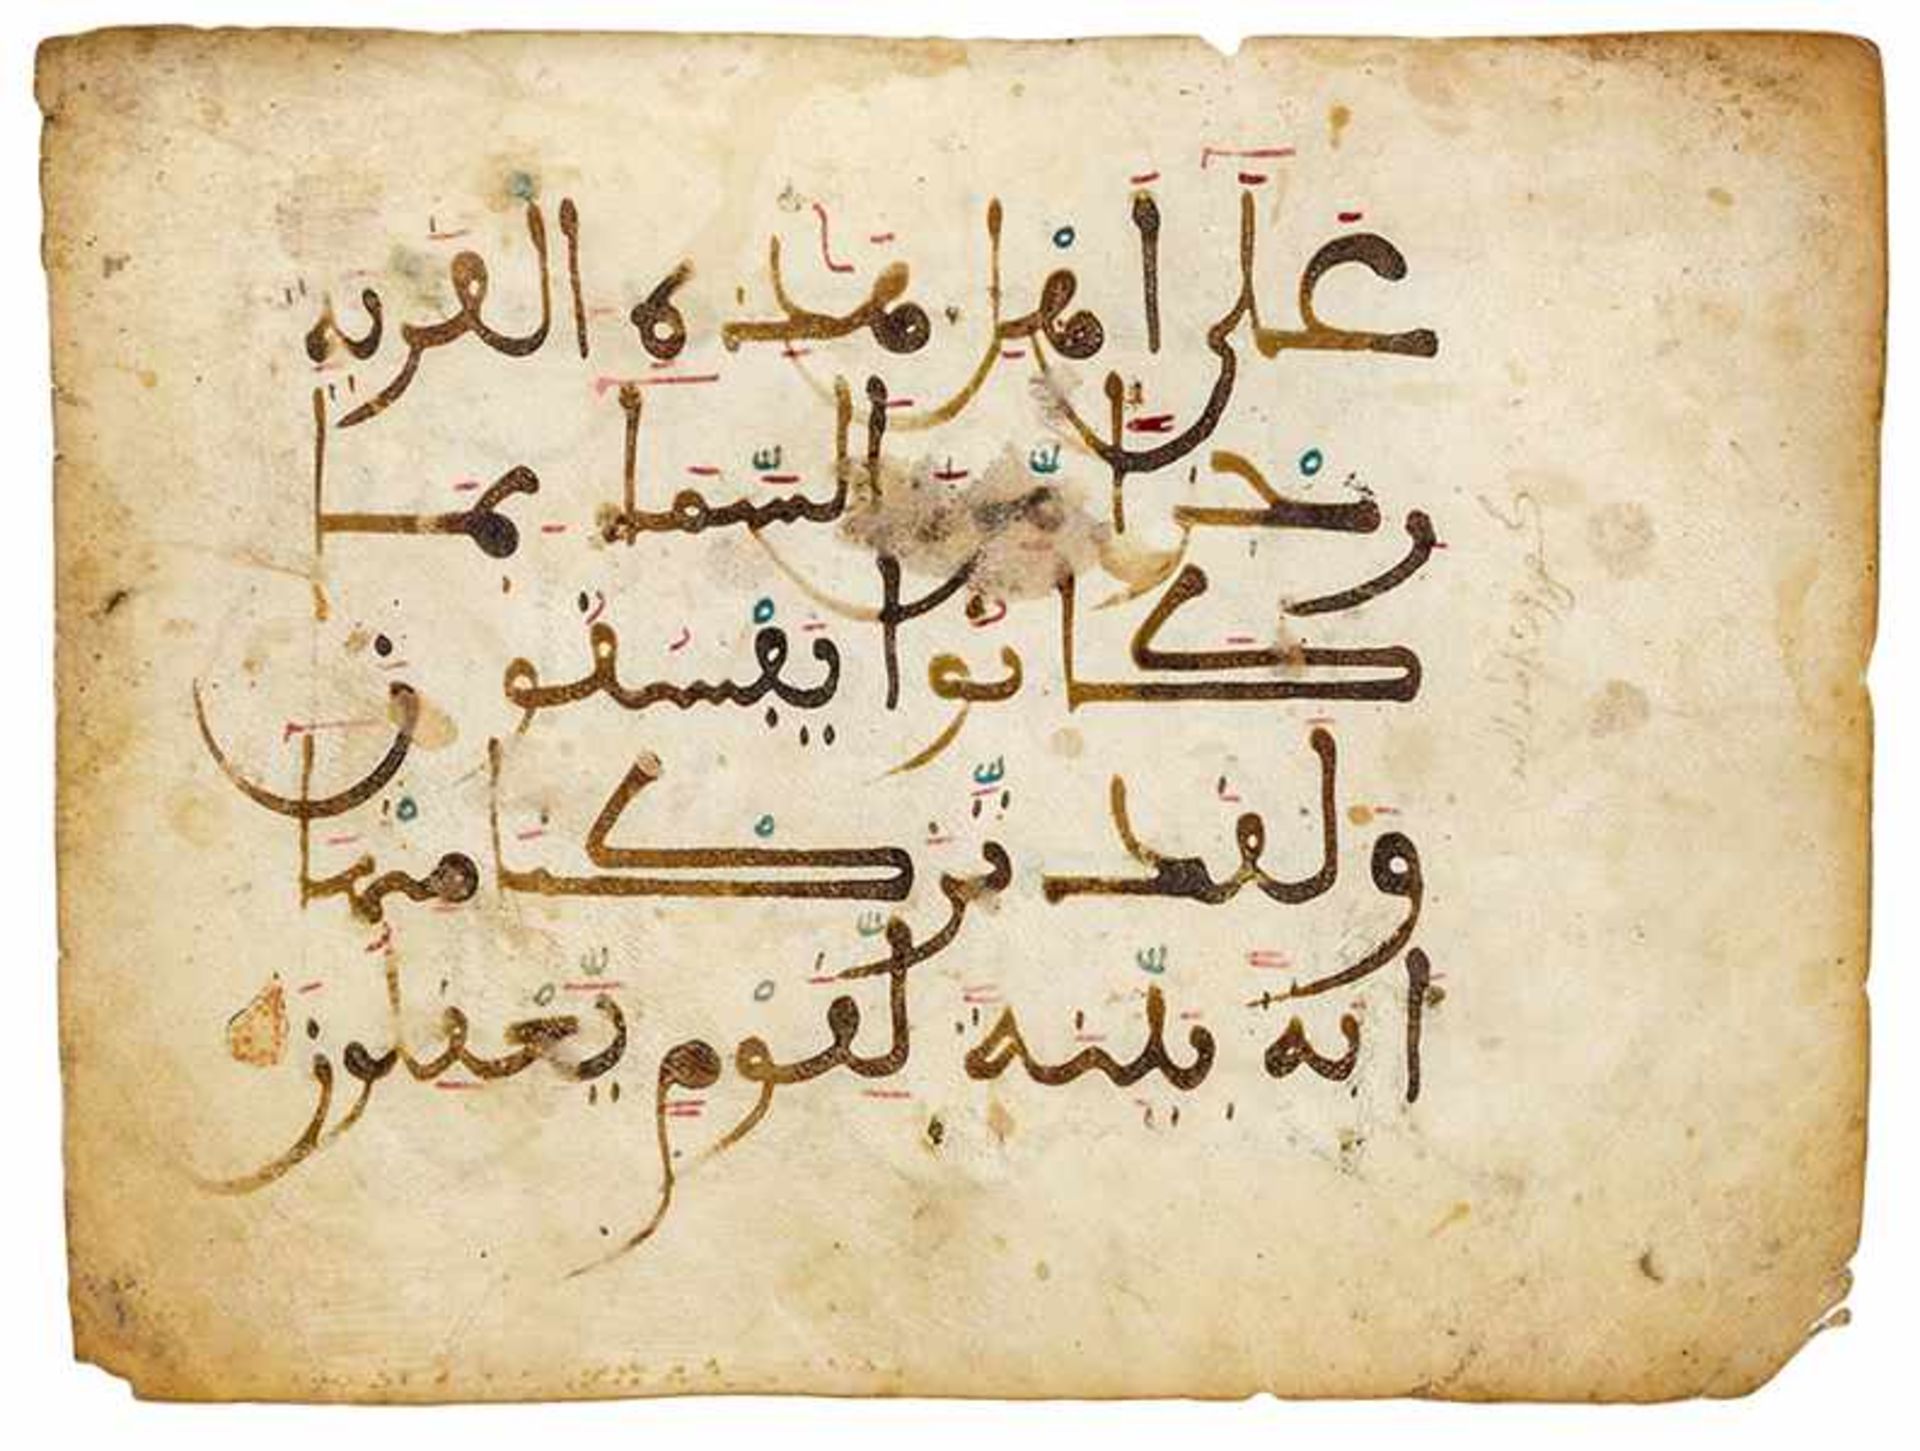 عَلَىٰٓ أَهْلِ هَٰذِهِ الْقَرْيَةِ
رِجْزًا مِّنَ السَّمَآءِ بِمَا
كَانُوا يَفْسُقُونَ
وَلَقَد تَّرَكْنَا مِنْهَآ
ءَايَةً بَيِّنَةً لِّقَوْمٍ يَعْقِلُونَ